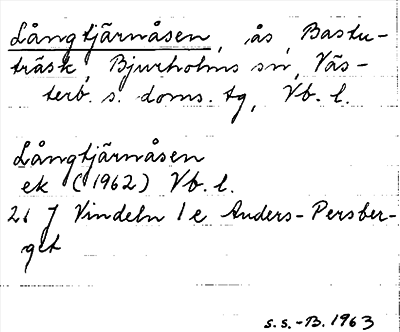 Långtjärnåsen, ås, Bastu-
träsk, Bjurholms sn, Väs-
terb. s. doms. tg, Vb. l.
Långtjärnåsen
ek (1962) Vb. l.
21 J Vindeln 1 e Anders-Persber-
get
s.s.-B. 1963